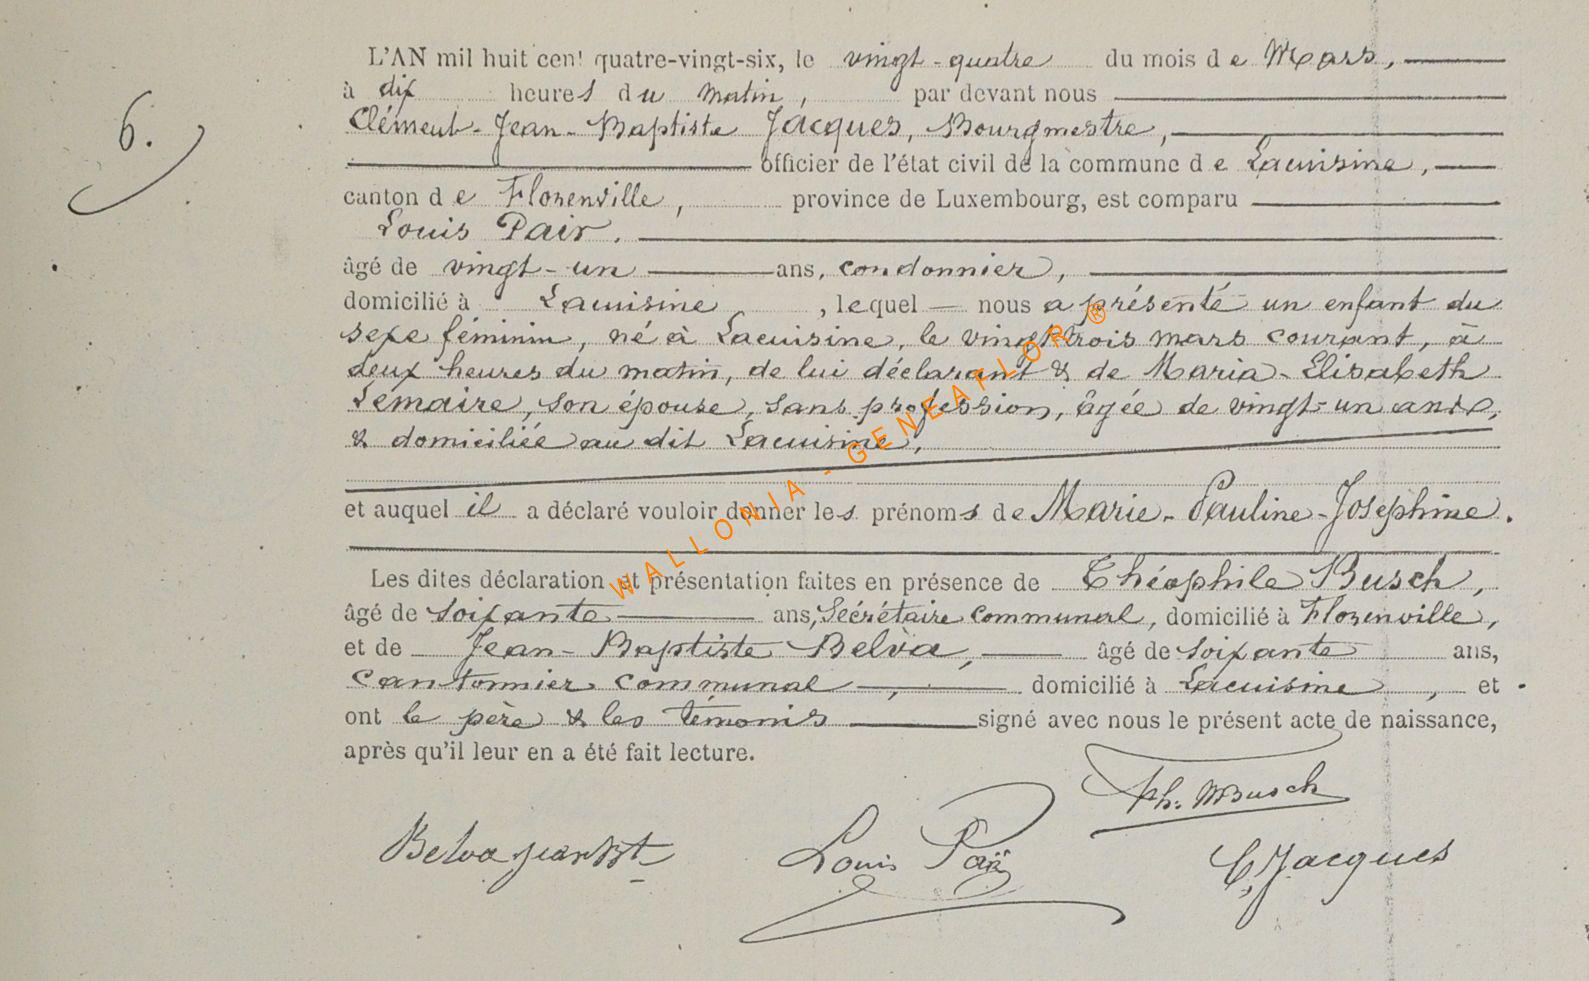 6.
L'AN mil huit cent quatre-vingt-six, le vingt-quatre du mois de Mars,
à dix heures du matin, par devant nous
Clément-Jean-Baptiste Jacques, Bourgmestre,
officier de l'état civil de la commune de Lacuisine,
canton de Florenville, province de Luxembourg, est comparu
Louis Pair,
âgé de vingt-un ans, cordonnier,
domicilié à Lacuisine, lequel nous a présenté un enfant du
sexe féminin, né à Lacuisine, le vingt-trois mars courant, à
deux heures du matin, de lui déclarant & de Maria-Elisabeth
Lemaire, son épouse, sans profession, âgée de vingt-un ans,
& domiciliée au dit Lacuisine,
et auquel il a déclaré vouloir donner les prénoms de Marie-Pauline-Joséphine.
Les dites déclaration et présentation faites en présence de Théophile Busch,
âgé de soixante ans, Secrétaire communal, domicilié à Florenville,
et de Jean-Baptiste Belva, âgé de soixante ans,
cantonnier communal, domicilié à Lacuisine, et
ont le père & les témoins signé avec nous le présent acte de naissance,
après qu'il leur en a été fait lecture.
Th. Busch
Belva jean Bt Louis Paÿ C. Jacques
WALLONIA - GENEAFLOR ®